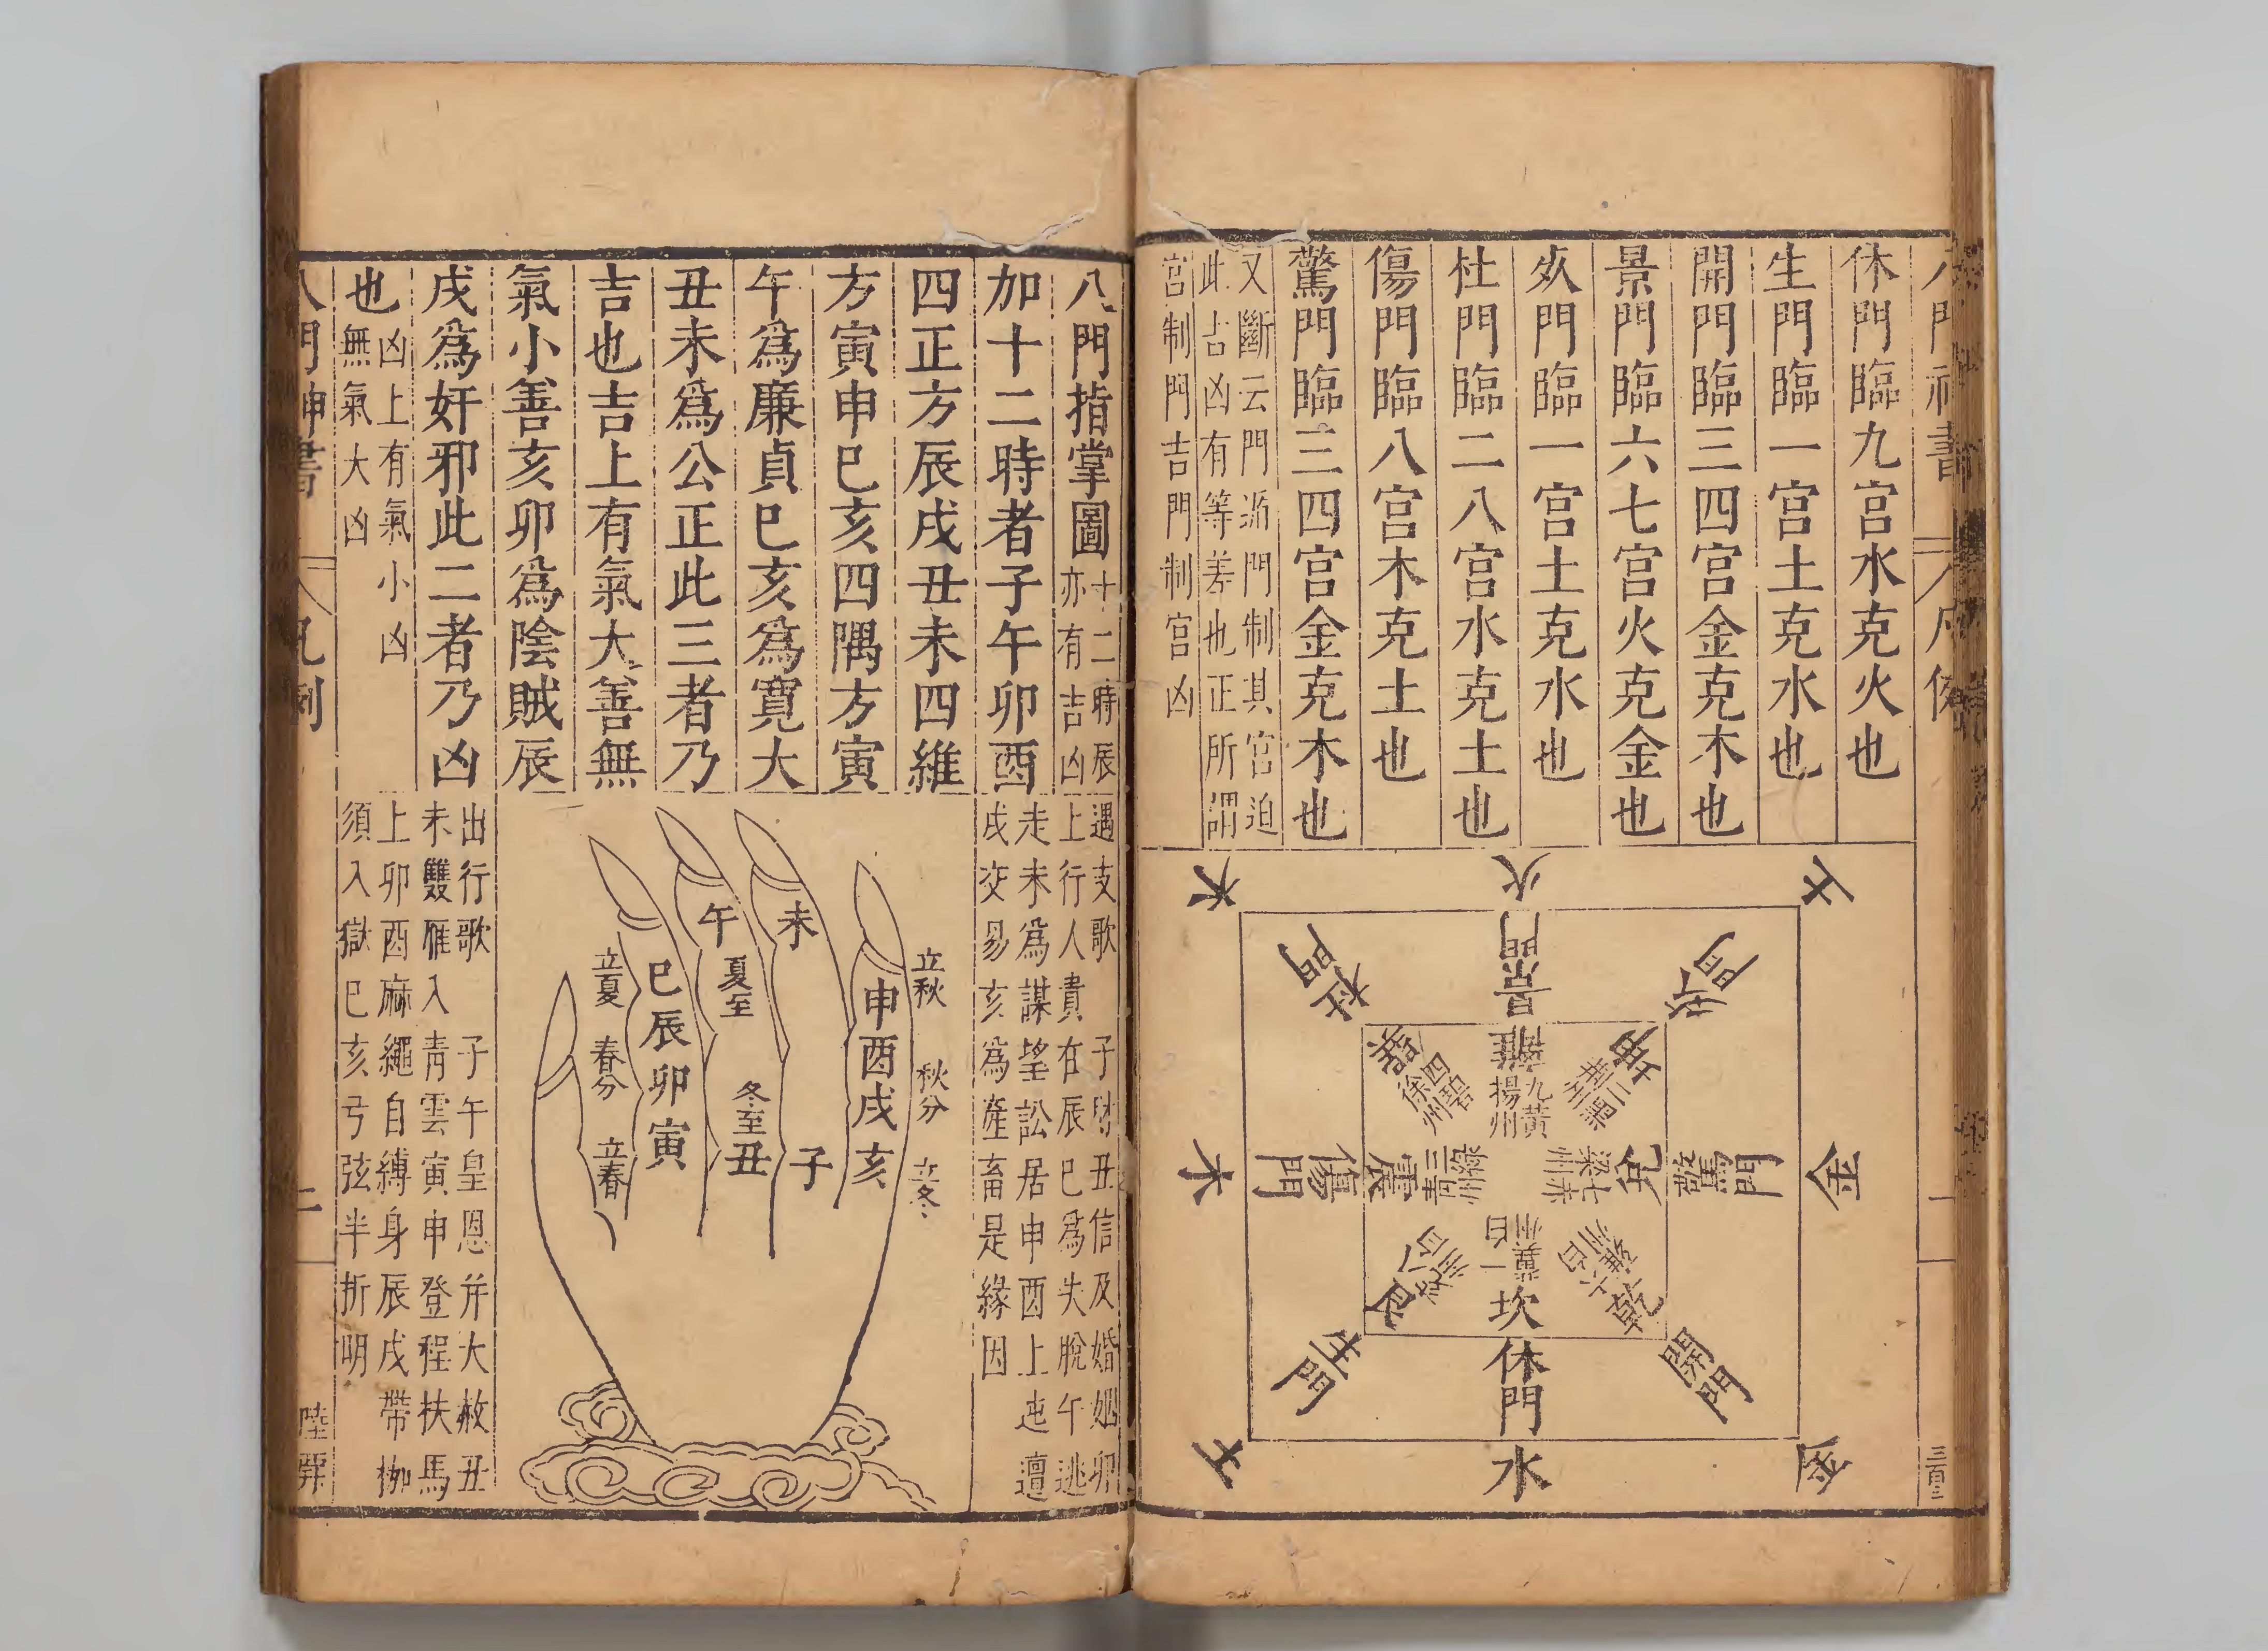 休門臨九宮水克火也
生門臨一宮土克水也
開門臨三四宮金克木也
景門臨六七宮火克金也
門臨一宮土克水也
杜門臨二八宮水克土也
傷門臨八宮木克土也
驚門臨三四宮金克木也
又斷云門逅門制其宮迫
此占凶有等差也正所謂
宮制門吉門制宮凶
火
土
金
金
水
土
木
木
景門
門
驚門
開門
休門
生門
傷門
杜門
離
九黃
揚州
坤
二黑
兌
七赤
梁州
六白
雍州
坎
一白
冀州
艮
八白
震
三綠
青州
巽
四碧
徐州
八門指掌圖
十二時辰
亦有吉凶
加十二時者子午卯酉
四正方辰戌丑未四維
方寅申巳亥四隅方寅
午爲廉貞巳亥爲寬大
丑未爲公正此三者乃
吉也吉上有氣大善無
氣小善亥卯爲陰賊辰
戌爲奸邪此二者乃凶
也
凶上有氣小凶
無氣大凶
遇支歌 子財丑信及婚姻卯
上行人貴在辰巳爲失脫午逃
走未爲謀望訟居申酉上迍邅
戌交易亥爲產畜是緣因
立秋
秋分
立冬
申酉戌亥
未
子
午
夏至
冬至
丑
巳辰卯寅
立夏
春分
立春
出行歌 子午皇恩并大赦丑
未雙雁入青雲寅申登程扶馬
上卯酉麻繩自縛身辰戌帶枷
須入獄巳亥弓弦半折明
八門神書
二